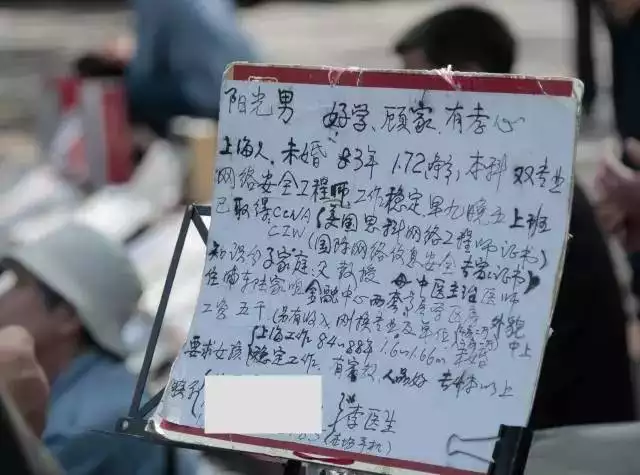 阳光男 好学、顾家、有孝心
上海人、未婚 83年 1.72身高、本科 双专业
网络安全工程师 工作稳定 早九晚五 上班
已取得CCNA (美国思科网络工程师证书)
CIW (国际网络信息安全专家证书)
知识分子家庭:父教授 母中医主治医师
住浦东陆家咀金融中心两套
工资五千 外貌中上
要求女孩 上海工作 84〜88年 1.6〜1.66m 未婚
稳定工作、有 人品好 专科以上
李医生
手机)